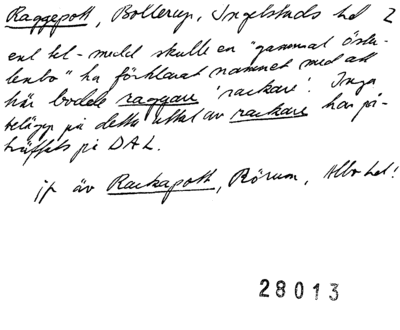 Raggepott, Bollerup, Ingelstads hd 2
enl tel-medd skulle en "gammal öster-
lenbo" ha förklarat namnet med att
här bodde raggare 'rackare'. Inga
belägg på detta uttal av rackare har på-
träffats på DAL.
jfr äv Rackapott, Rörum, Albo hd!
28013